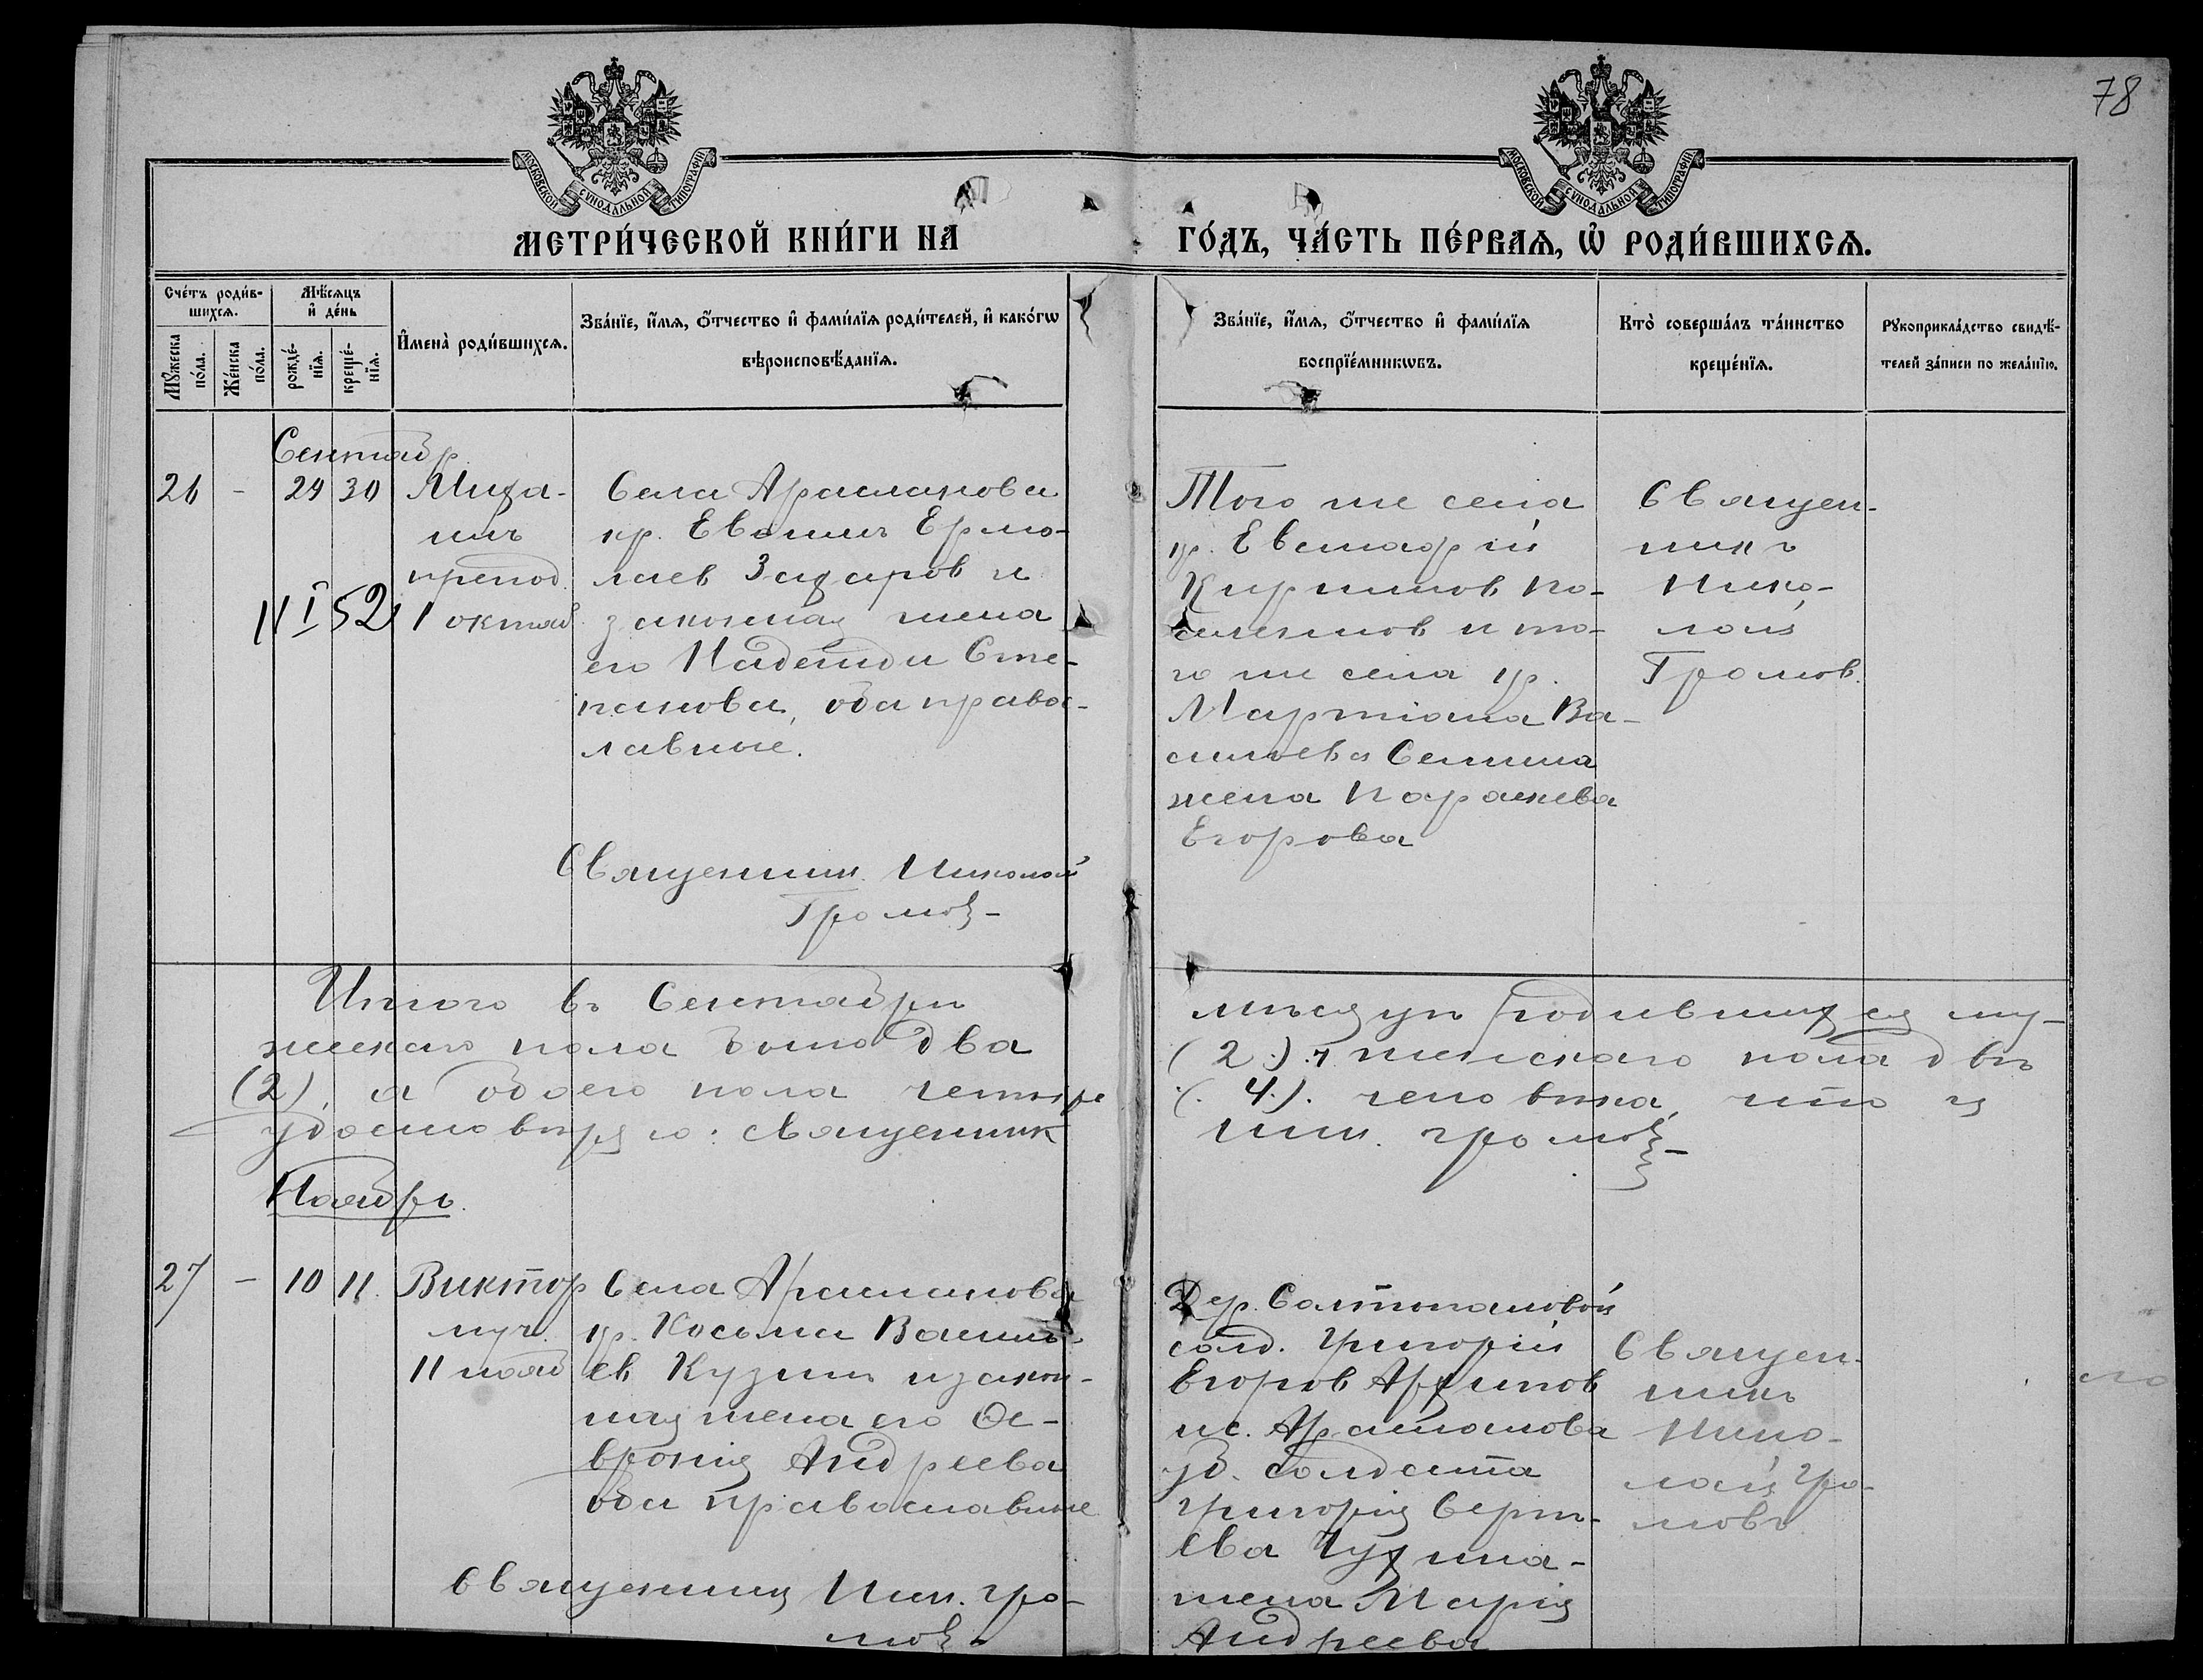 78
МОСКОВСКОЙ СѴНОДАЛЬНОЙ ТИПОГРАФІИ
МОСКОВСКОЙ СѴНОДАЛЬНОЙ ТИПОГРАФІИ
МЕТРИ́ЧЕСКОЙ КНИ́ГИ НА
ГО́ДЪ, ЧА́СТЬ ПЕ́РВАѦ, Ѡ РОДИ́ВШИХСѦ.
Сче́тъ роди́в-
шихсѧ.
Мꙋ́жеска по́ла.
Же́нска по́ла.
Мѣ́сѧцъ
и҆ де́нь
рожде́-
нїѧ.
креще́-
нїѧ.
И҆мена̀ роди́вшихсѧ.
Зва́нїе, и҆́мѧ, ѻ҆́тчество и҆ фами́лїѧ роди́телей, и҆ како́гѡ
вѣроисповѣ́данїѧ.
Зва́нїе, и҆́мѧ, ѻ҆́тчество и҆ фами́лїѧ
воспрїе́мникѡвъ.
Кто̀ соверша́лъ та́инство
креще́нїѧ.
Рꙋкоприкла́дство свидѣ́-
телей за́писи по жела́нїю.
Сентябр
26 - 29 30
Миха-
илъ
препод.
1 октяб.
II I 52
Села Арасланова
кр. Евфимъ Ермо-
лаев Захаров и
законная жена
его Надежда Сте-
панова, оба правос-
лавные.
Священник Николай
Громов
Того же села
кр. Евстафій
Кирилов По-
и то-
го же села кр.
Мартіана Ва-
сильева Семина
жена Параскева
Егорова
Священ-
никъ
Нико-
лай
Громов.
Итого въ Сентябрѣ
мѣсяцѣ родившихся му-
жскаго пола было два
(2) и женскаго пола двѣ
(2), а обоего пола четыре
(4). человѣка, что и
удостовѣряю: священник
Ник. Громов
Ноябрь.
27 - 10 11.
Виктор
муч.
11 нояб
Села Арасланова
кр. Косьма Василь-
ев Кузин и закон-
ная жена его Фе-
вронія Андреева
оба православные
Священник Ник. Гро-
мов
Дер.
солд. Григорій
Егоров Архипов
и с. Арасланова
солдата
Григорія
ева
жена Марія
Андреева
Священ-
никъ
Нико-
лай Гро-
мовъ